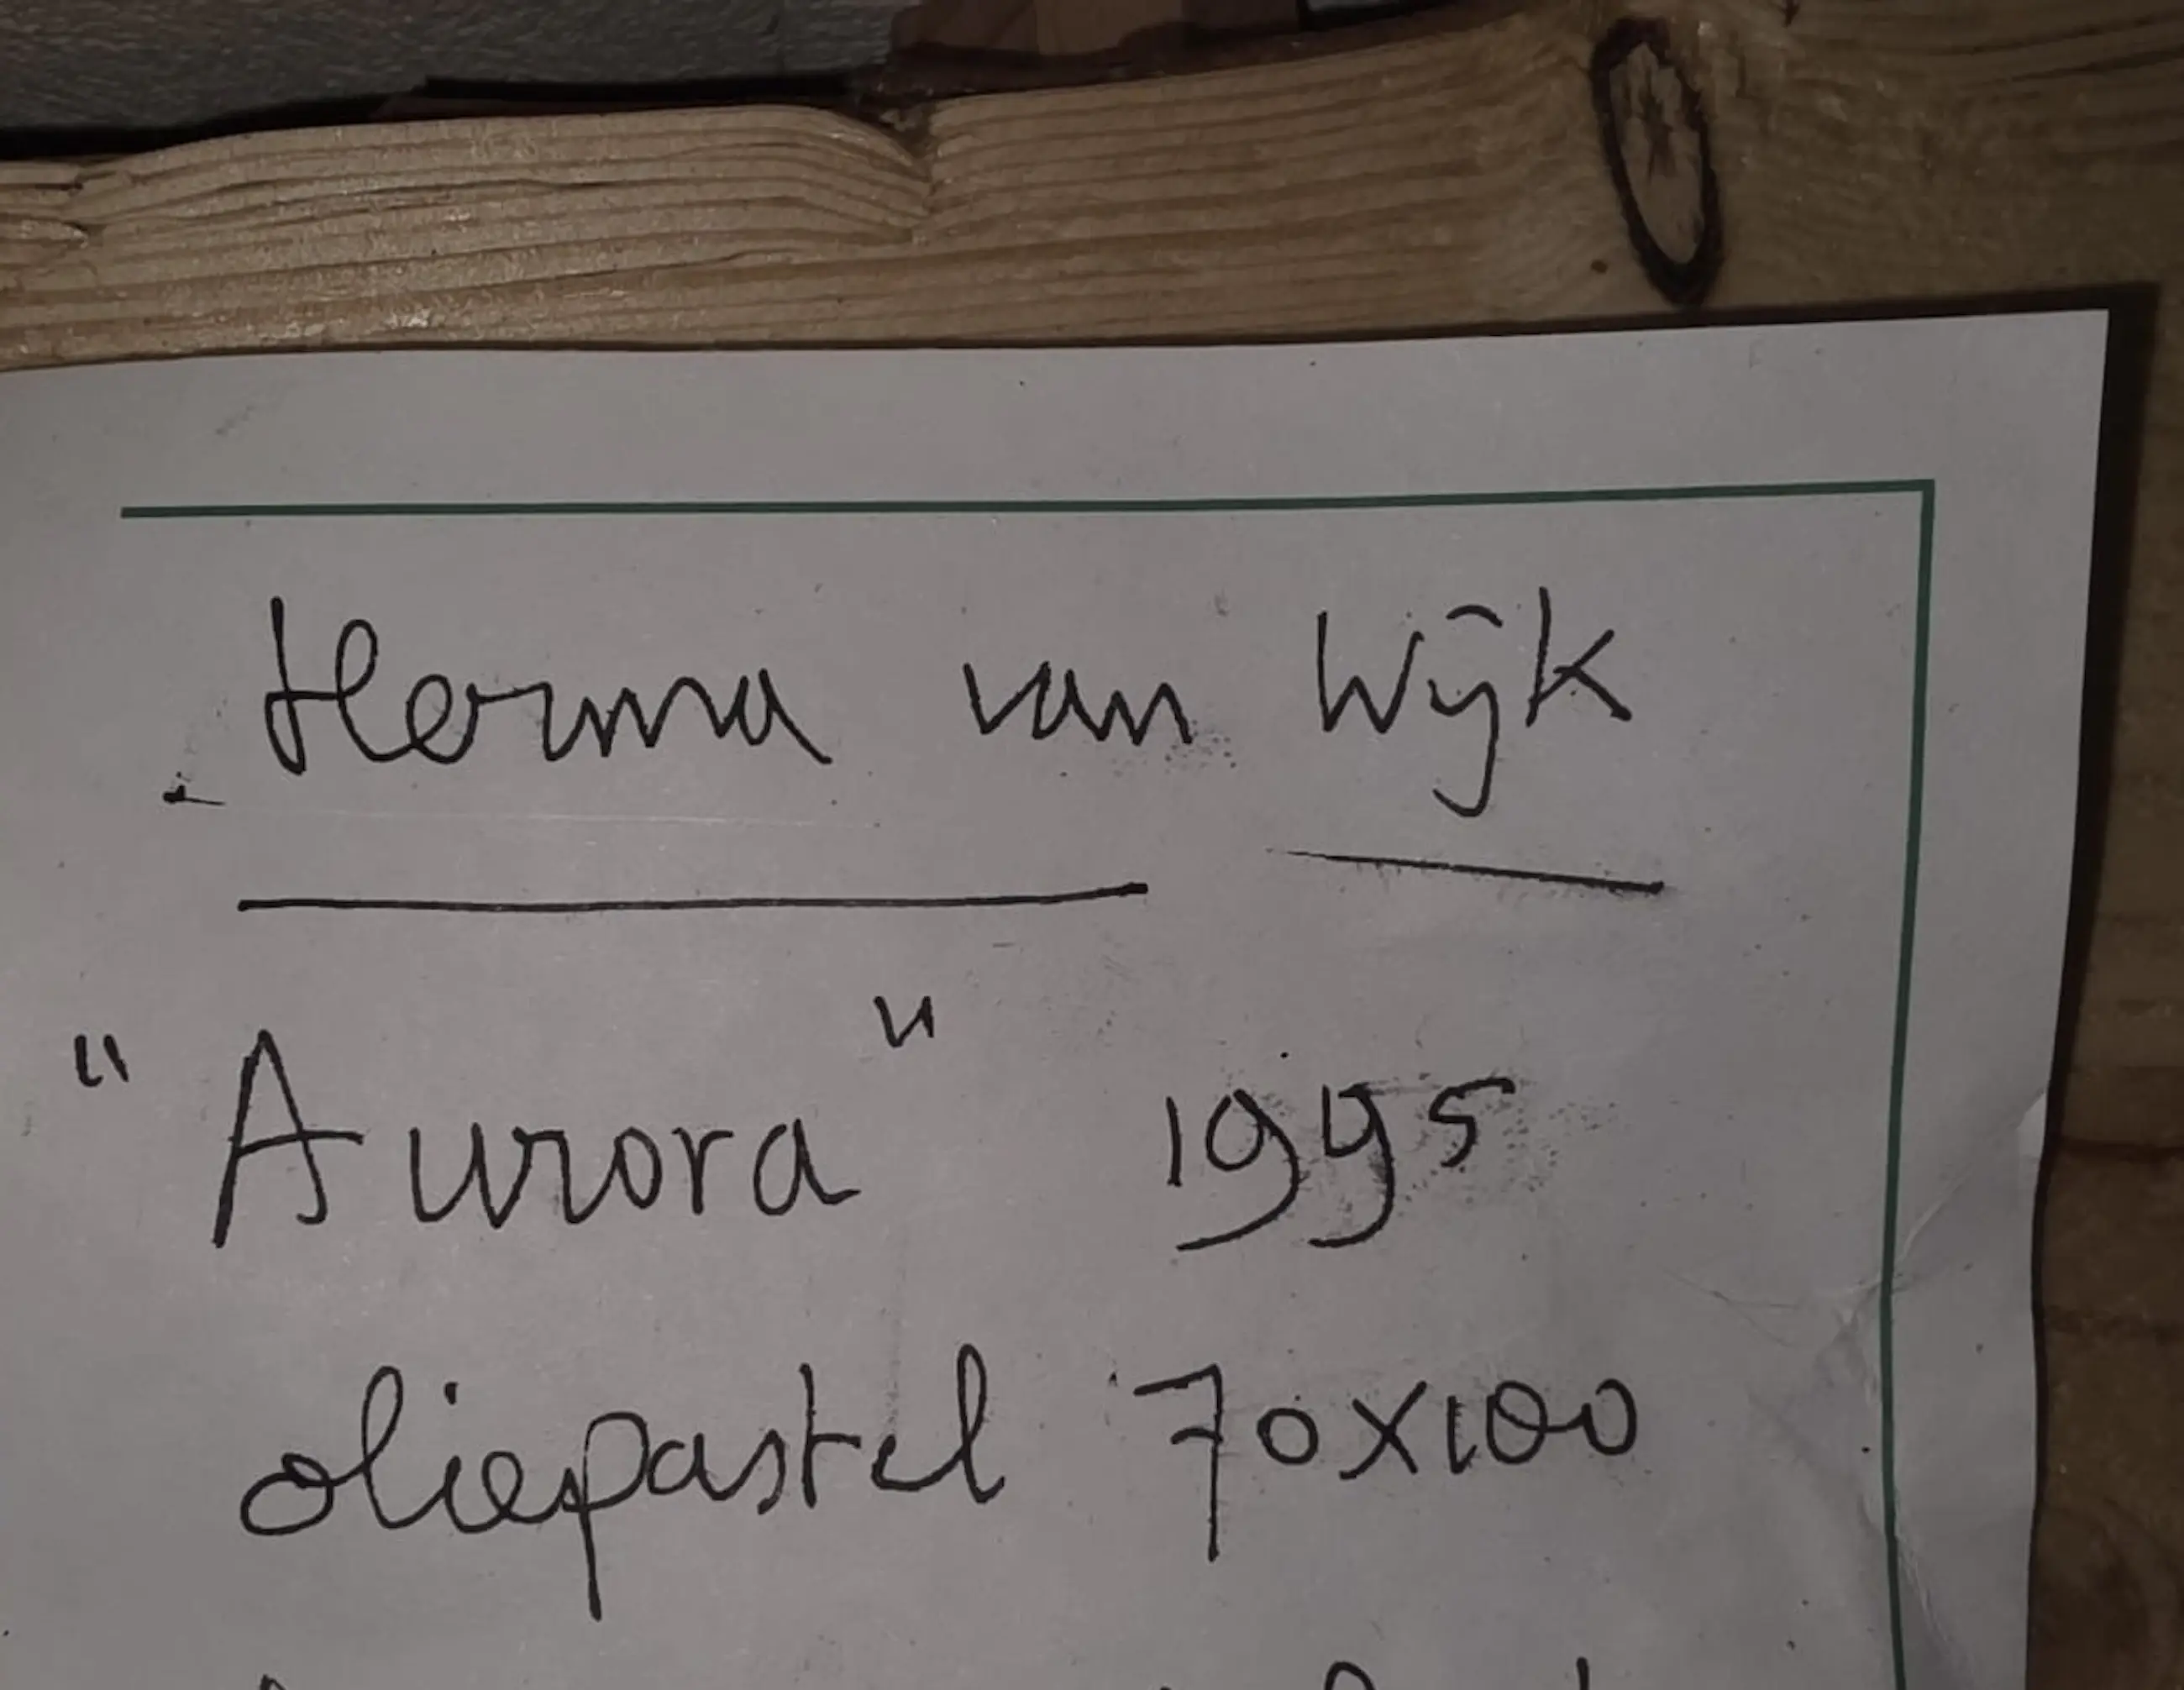 Herma van Wijk
"Aurora" 1995
oliepastel 70x100